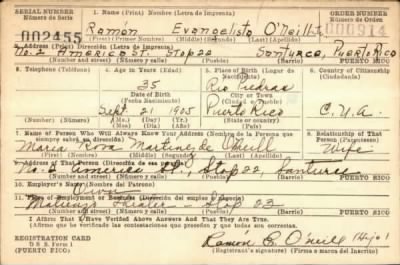 SERIAL NUMBER 1. Name (Print) Nombre (Letra de Imprenta) ORDER NUMBER
Número de Serie Número de Orden
002455 Ramón Evangelisto O'Neill 000914
(Primer Nombre) (Middle) (Segundo) (Last) (Apellido)
2. Address (Print) Dirección (Letra de Imprenta)
No. 2 America St. Stop 22 Santurce, Puerto Rico
(Number) (Número) (Street) (Calle) (Town) (Pueblo) PUERTO RICO
3. Telephone (Teléfono) 4. Age in Years (Edad) 5. Place of Birth (Lugar de Nacimiento) 6. Country of Citizenship (Ciudadanía)
35 Rio Piedras
Date of Birth City or Town
(Fecha Nacimiento) (Ciudad o Pueblo)
Sept. 21 1905 Puerto Rico
State or Country
(Estado o País)
7. Name of Person Who Will Always Know Your Address (Nombre de la Persona que siempre sabrá su dirección) 8. Relationship of That Person (Parentesco)
Maria Rosa Martinez de O'neill Wife
(First) (Nombre) (Middle) (Segundo) (Last) (Apellido)
9. Address of That Person (Dirección de esa persona)
No. 2 America St., Stop 22, Santurce
(Number) (Número) (Street) (Calle) (Town) (Pueblo) PUERTO RICO
10. Employer's Name (Nombre del Patrono)
11. Place of Employment or Business (Dirección del empleo o negocio)
Stop 23
(Number) (Número) (Street) (Calle) (Town) (Pueblo) PUERTO RICO
I Affirm That I Have Verified Above Answers And That They Are True.
(Afirmo que he verificado las contestaciones que preceden y que todas son ciertas.)
REGISTRATION CARD Ramón E. O'neill (Hijo)
D S S. Form 1 Registrant's signature (Firma o marca del Inscrito)
(PUERTO RICO)